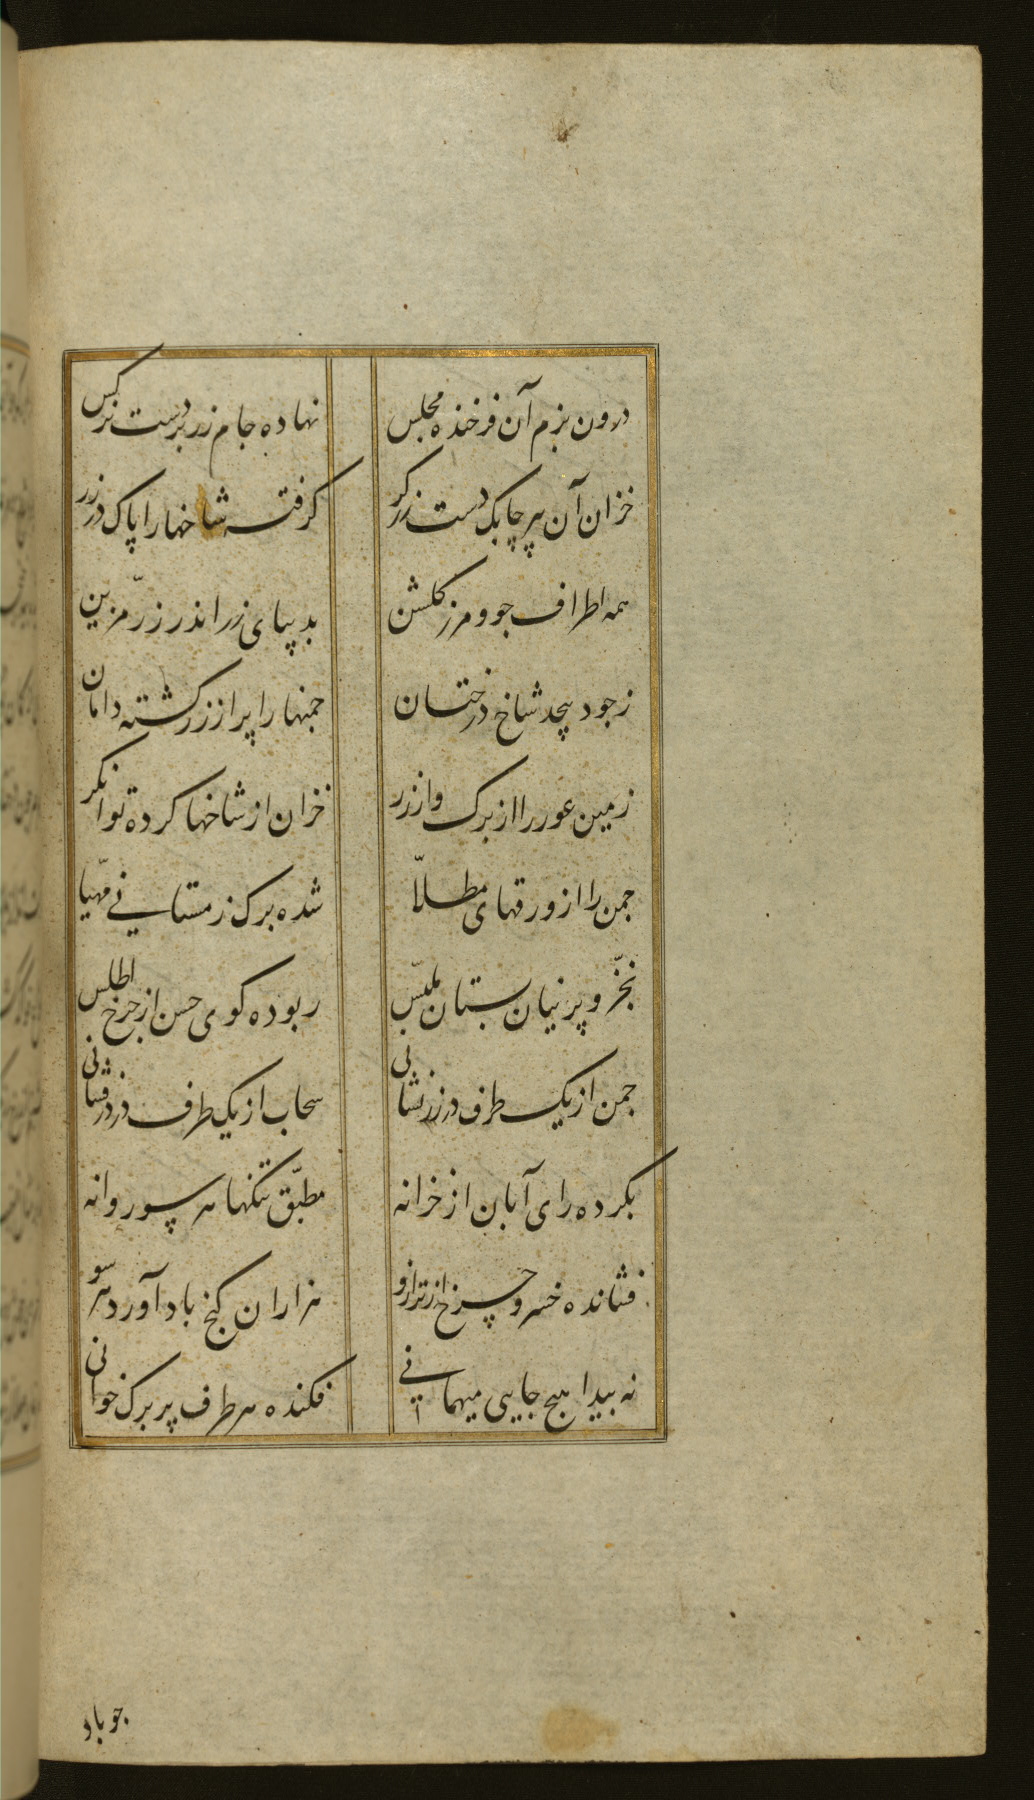 درون بزم آن فرخنده مجلس
نهاده جام زر بر دست نرکس
خزان آن پیر چابک دست زرکر
کرفته شاخها را پاک در زر
همه اطراف جو و مرز کلشن
بدیبای زر اندر زر مزین
زجود شاخ درختان
جمنها را پر از زر کشته دامان
زمین عور را از برک و از زر
خزان از شاخها کرده توانکر
جمن را از ورقهای مطلّا
شده برک زمستانی مهّیا
بخزّ و پرنیان بستان ملبّس
ربوده کوی حسن از جرخ اطلس
جمن از یک طرف در زرفشانی
سحاب از یک طرف در درفشانی
بکرده رای آبان از خزانه
مطبّق تنکها هر سو روانه
فشانده خسرو چرخ از ترازو
هزاران کنج باد آورد هر سو
نه بیدا هیچ جایی میهمانی
فکنده هر طرف پر برک خوانی
جو باد